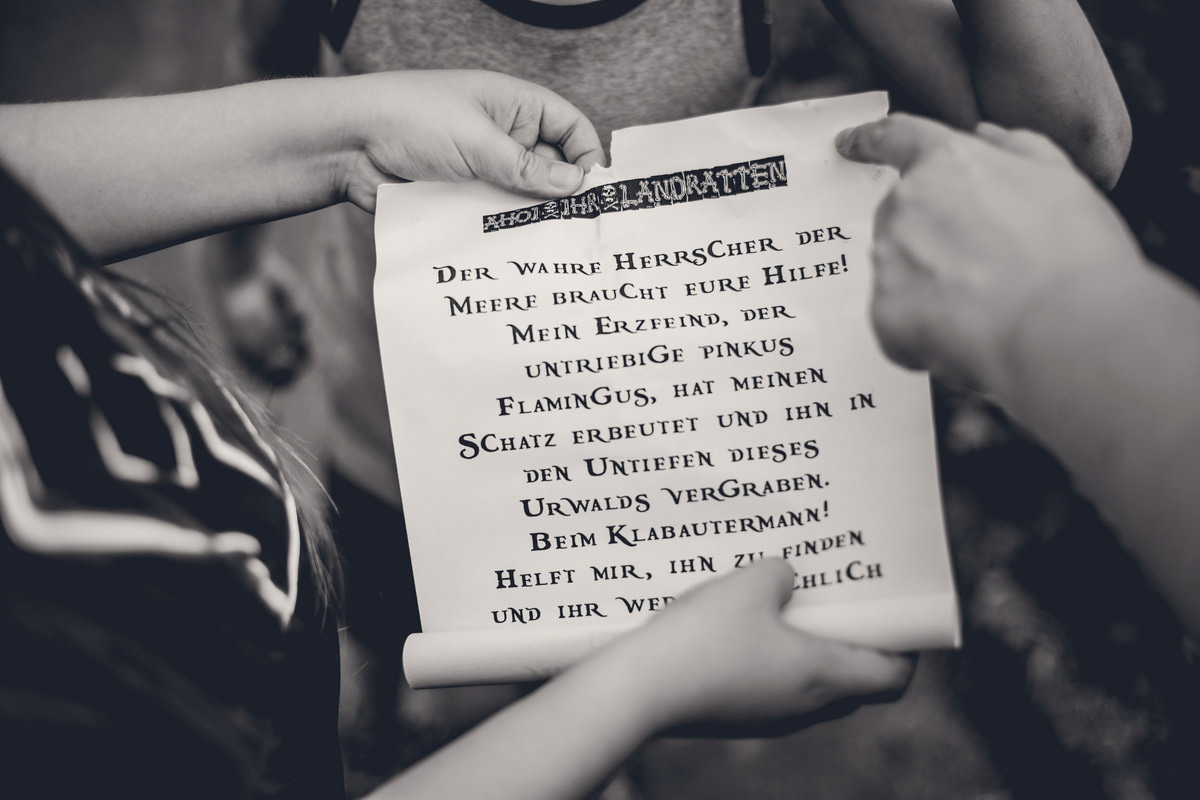 AHOI IHR LANDRATTEN
DER WAHRE HERRSCHER DER
MEERE BRAUCHT EURE HILFE!
MEIN ERZFEIND, DER
UNTRIEBIGE PINKUS
FLAMINGUS, HAT MEINEN
SCHATZ ERBEUTET UND IHN IN
DEN UNTIEFEN DIESES
URWALDS VERGRABEN.
BEIM KLABAUTERMANN!
HELFT MIR, IHN ZU FINDEN
UND IHR